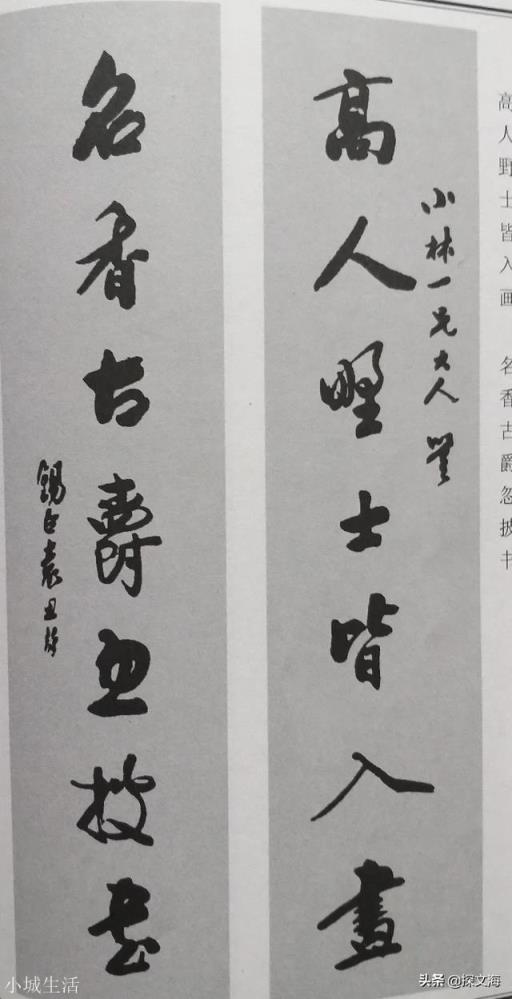 高人野士皆入画
名香古爵忽披书
小林一兄大人
高人野士皆入畫
名香古爵忽披書
錫臣袁思
小城生活
头条 @探文海